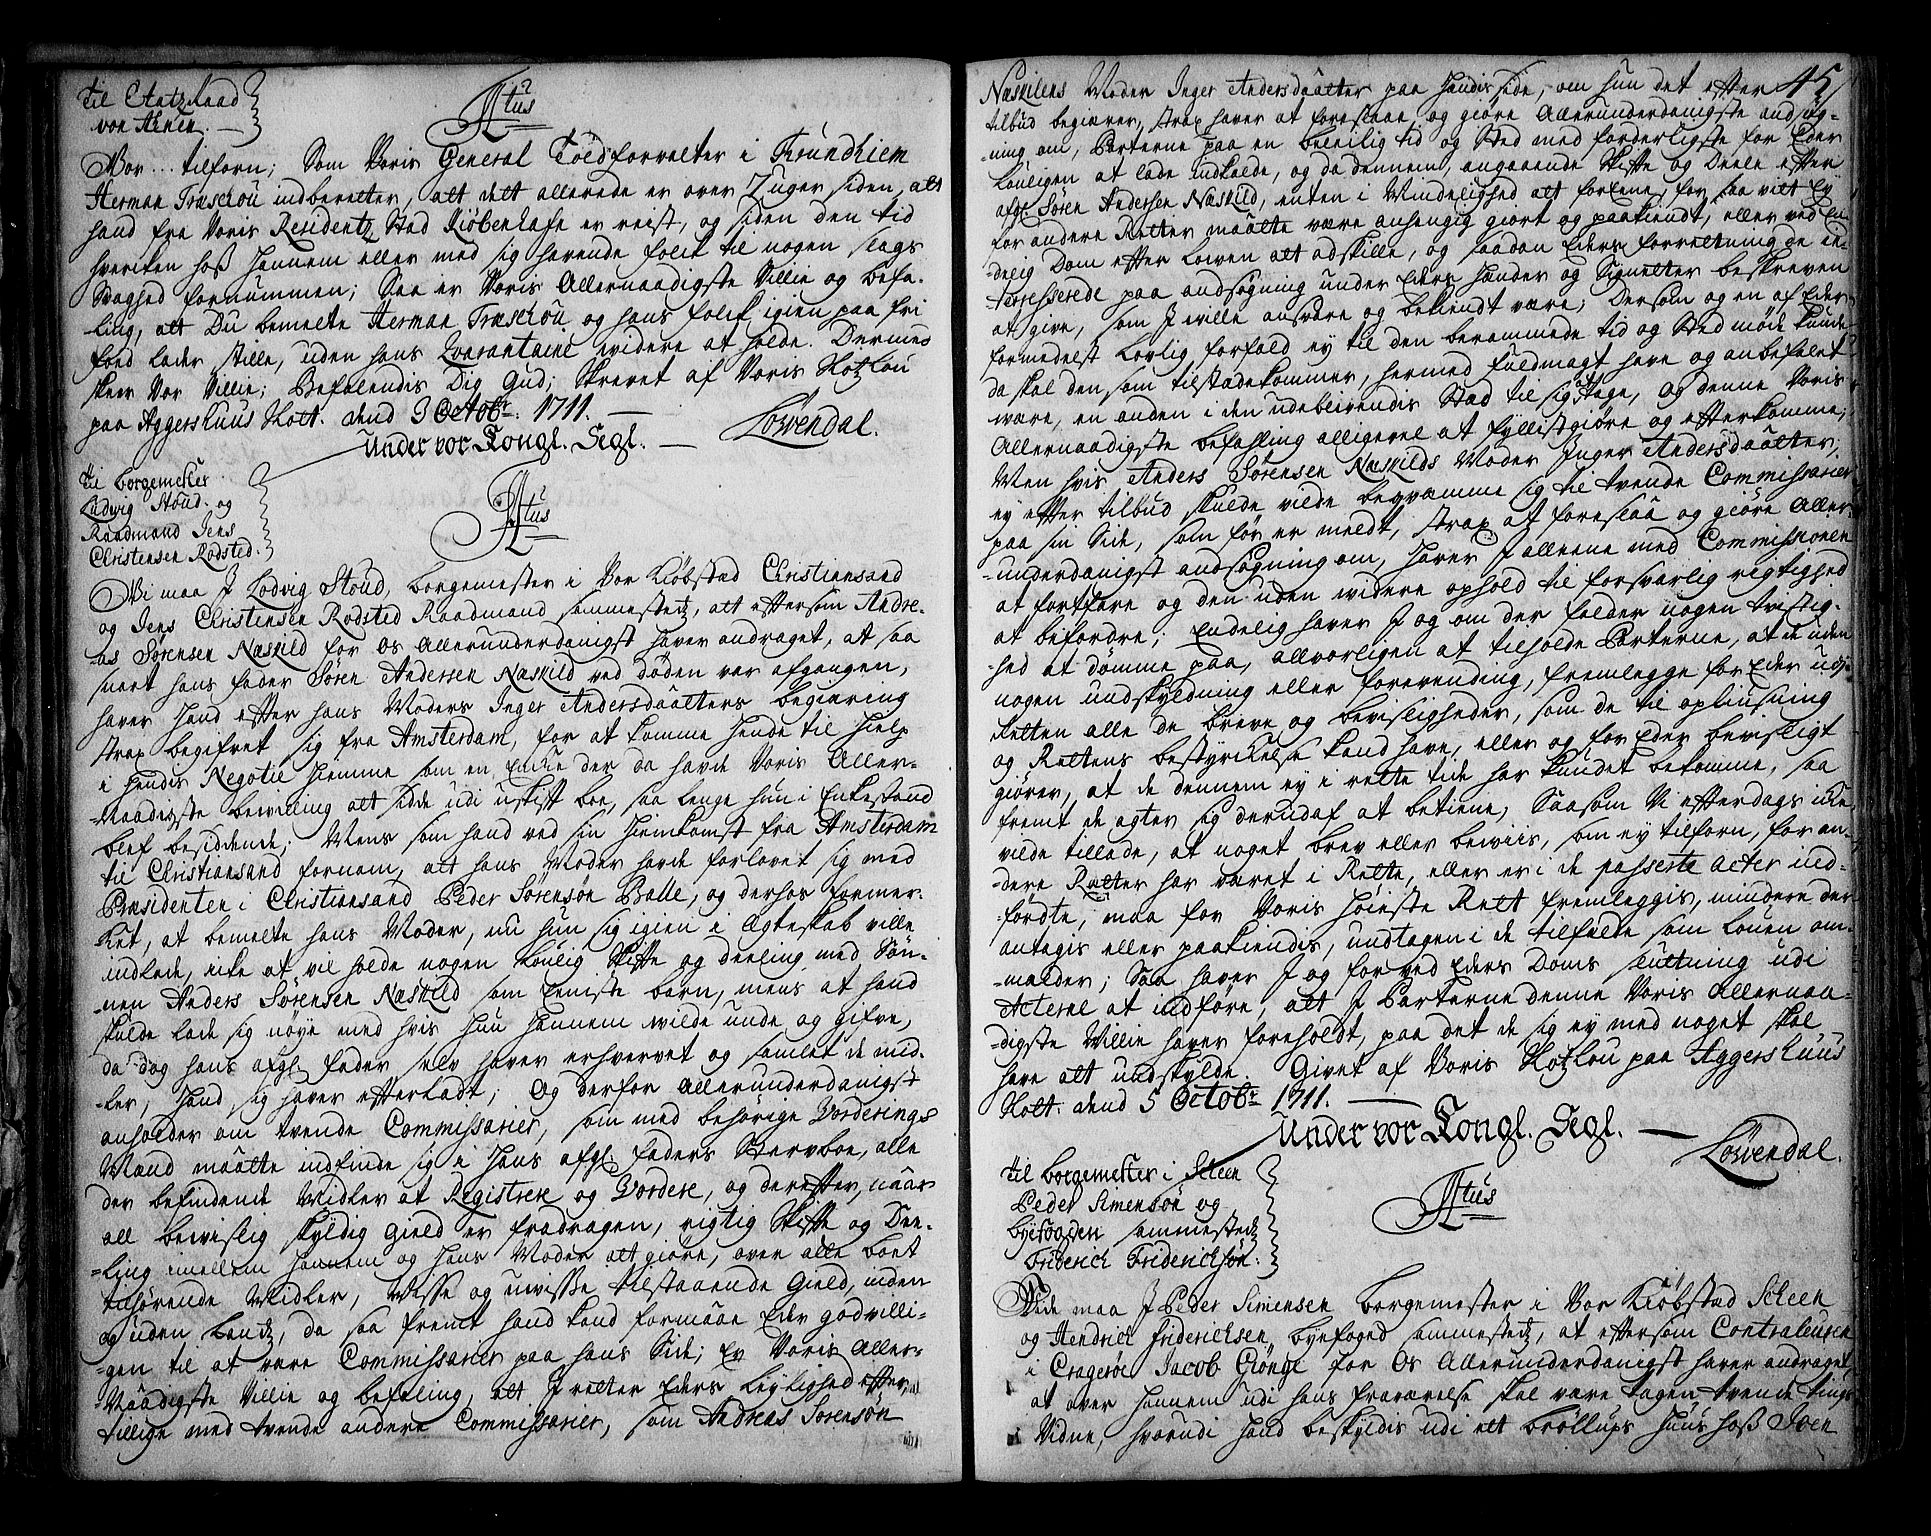 Til Etatzraad
von Ahnen.
Fr: 4tus
Vor... tilforn; Som Voris General Toldforvalter i Trundhiem
Herman Træschou indberetter, att dett allerede er over 7 uger siden, att
hand fra Voris Residentz Stad Kiöbenhafn er reist, og siden den tid
hverken hoß hannem eller med sig havende folk til nogen slags
Svaghed fornummen; Saa er Voris Allernaadigste Villie og befa-
ling, att Du bemelte Herman Træschou og hans folk igien paa fri
foed lader stille, uden hans Qvarantaine widere at holde. Dermed
skeer Vor Villie; Befalendis Dig Gud; Skrevet af Voris Slotzlou
paa Aggershuus Slott. dend 3 Octobr. 1711.
Under vor Kongl. Segl.
Löwendal.
Til borgemester
Ludvig Stoud. og
Raadmand Jens
Christensen Rodsted.
F: 4tus
Vi maa I Lodvig Stoud, borgemester i Vor Kiöbstad Christiansand
og Jens Christensen Rodsted Raadmand sammestedz, att eftersom Andre-
as Sörensen Næskild for Os Allerunderdanigst haver andraget, at saa
snart hans fader Sören Andersen Næskild ved döden var afgangen,
haver hand efter hans Moders Inger Andersdaatters begiering
strax begifvet sig fra Amsterdam, for at komme hende til hielp
i hendis Negotie hiemme som en Enke der da havde Voris Aller-
naadigste bevilning att sidde udi uskift boe, saa lenge hun i Enkestand
blef besiddende; Mens som hand ved sin hiemkomst fra Amsterdam
til Christiansand fornam, att hans Moder havde forlovet sig med
Præsidenten i Christiansand Peder Sörensön Balle, og derhos former-
ket, at bemelte hans Moder, nu hun sig igien i Ægteskab ville
indlade, icke at vil holde nogen Lovlig Skifte og deeling med Sön-
nen Anders Sörensen Næskild som Eeniste barn, mens at hand
skulde lade sig nöye med hvis hun hannem wilde unde og gifve,
da dog hans afgl. fader selv haver erhvervet og samlet de mid-
ler, hand sig haver efterladt; Og derfor Allerunderdanigst
anholder om tvende Commissarier, som med behörige Vorderings
Mænd maatte indfinde sig i hans afgl. faders Stervboe, alle
der befindende Midler at Registrere og Vordere, og derefter, naar
all beviislig skyldig gield er fradragen, rigtig Skifte og Dee-
ling imellem hannem og hans Moder att giöre, over alle boet
tilhörende Midler, Visse og uvisse tilstaaende Gield, inden
og uden Landz, da saa fremt hand kand formaae Eder godvilli-
gen til at vare Commissarier paa hans Side; Er Voris Aller-
naadigste Villie og befaling, att I retter Eders Leylighed efter,
tillige med tvende andere Commissarier, som Andreas Sörensön
45
Næskilens Moder Inger Andersdaatter paa hendis side, om hun det efter
tilbud begierer, strax haver at foreslaae, og giöre Allerunderdanigste ansög-
ning om, Parterne paa en beleilig tid og Sted med forderligste for Eder
Louligen at lade indkalde, og da dennem, angaaende Skifte og Deele efter
afgl. Sören Andersen Næskild, enten i Mindelighed att foreene, for saa vitt Ey
for andere Retter maatte være anhengig giort og paakiendt, eller ved En-
delig Dom efter Lowen att adskille, og saadan Eders forretning de in-
teresserede paa ansögning under Eders hænder og Signetter beskreven
at give, som I wille ansvare og bekiendt være; Dersom og en af Eder
formedelst Lovlig forfald ey til den berammede tid og Sted möde kunde
da skal den, som tilstædekommer, hermed fuldmagt have og anbefalet
være, en anden i den udeblivendis Sted til sig tage, og denne Voris
Allernaadigste befahling alligevel at fyllistgiöre og efterkomme;
Men hvis Anders Sörensen Næskilds Moder Inger Andersdaatter;
ey efter tilbud skulde vilde beqvamme sig til tvende Commissarier
paa sin Side, som för er meldt, strax at foreslaa og giöre Aller-
underdanigst ansögning om, haver I alleene med Commissionen
at fortfare og den uden widere ophold til forsvarlig rigtighed
at befordre; Endelig haver I og om der falder nogen tvistig-
hed at dömme paa, alvorligen at tilholde Parterne, at de uden
nogen undskyldning eller forevending, fremlegge for Eder udj
Retten alle de breve og bevisligheder, som de til oplysning
og Rettens bestyrkelse kand have, eller og for Eder bevisligt
giörer, at de dennem ey i rette tide har kundet bekomme, saa
fremt de agter sig deraf at betiene; Saasom Vi efterdags icke
vilde tillade, at noget brev eller beviis, som ey tilforn, for an-
dere Retter har været i Rette, eller er i de passerte acter ind-
fördte, maa for Voris höieste Rett fremleggis, mindere der
antagis eller paakiendis, undtagen i de tilfælde som Louen om-
melder; Saa haver I og forved Eders Doms slutning udi
Acterne at indföre, att I Parterne denne Voris Allernaa-
digste Villie haver foreholdt, paa det de sig ey med noget skal
have att undskylde. Givet af Voris Slotzlou paa Aggershuus
Slott. dend 5 Octobr 1711.
Under vor Kongl. Segl.
Löwendal.
Til borgemester i Scheen
Peder Simensön og
byefogden sammestedz
Friderich Friderichsön.
4tus
Vide maa I Peder Simensen borgemester i Vor Kiöbstad Scheen
og Hendrich Friderichsen, byefoged sammestedz, at eftersom Contraleuren
i Crageröe Jacob Giönge for Os Allerunderdanigst haver andraget,
at over hannem udi hans fraværelse skal være tagen tvende tings
Vidne, hvorudi hand beskyldis udi ett bröllups huus hoß Iver